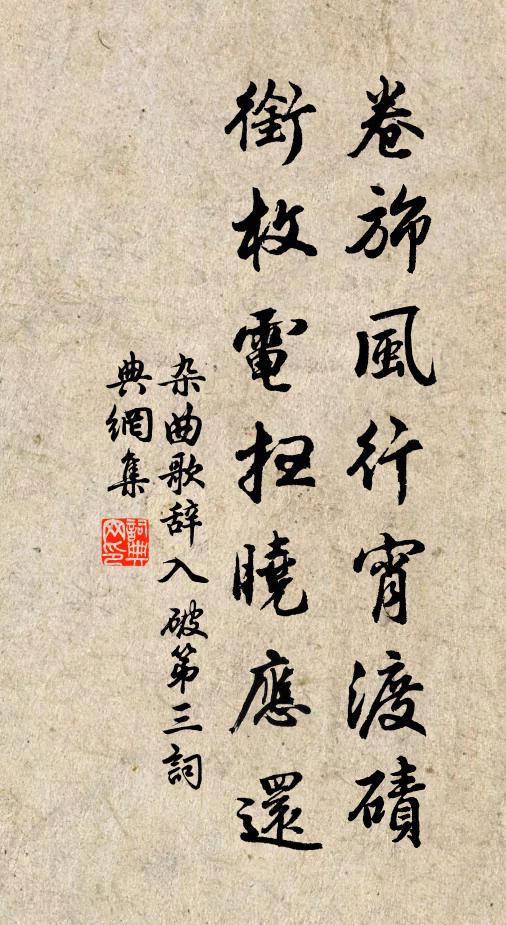 卷旆風行宵渡磧
銜枚電扫曉應還
杂曲歌辞入破第三詞
典網集
詞典
网印